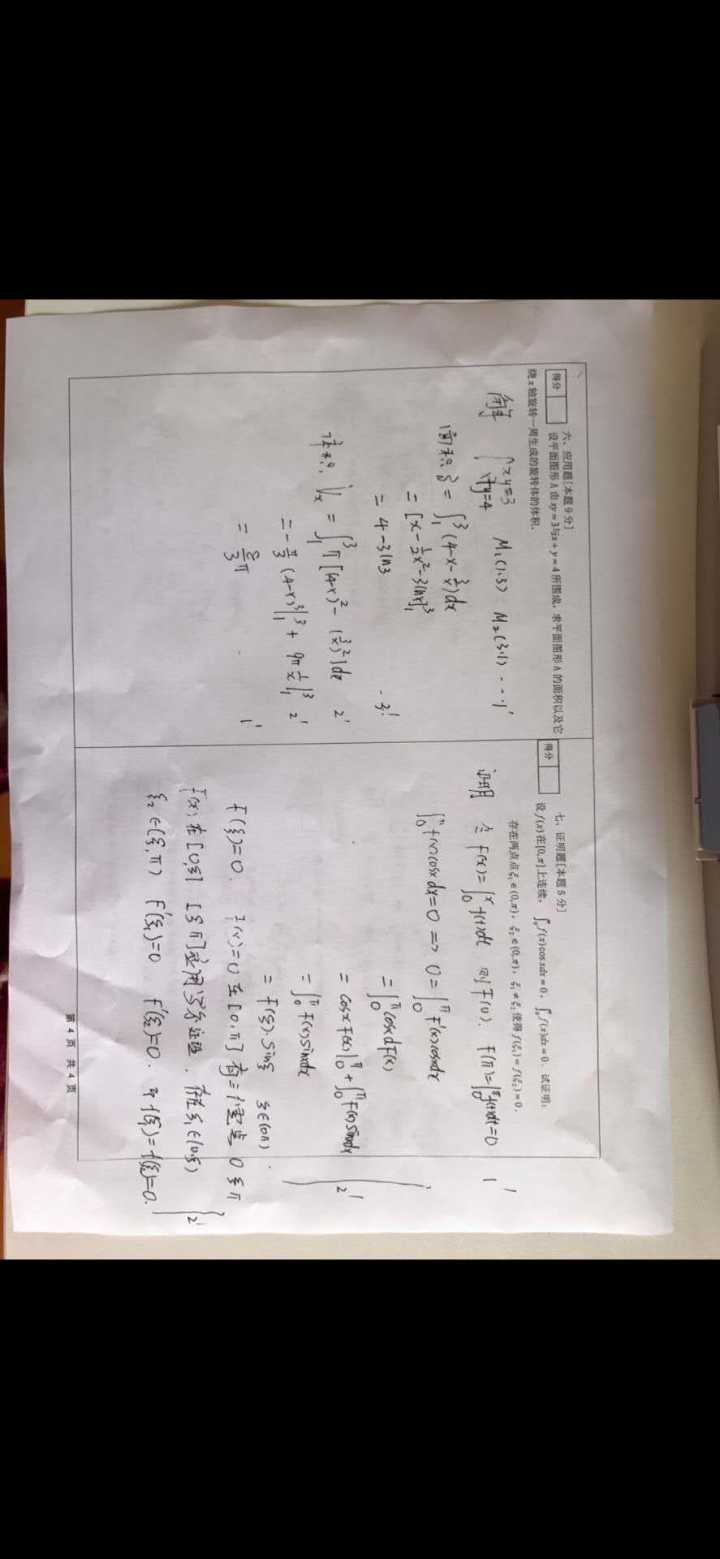 得分
六、应用题[本题9分]
设平面图形A由xy=3与x+y=4所围成，求平面图形A的面积以及它
绕x轴旋转一周生成的旋转体的体积.
解 { xy=3 x+y=4 M₁(1.3) M₂(3.1) ...1'
面积 = ∫₁³(4-x-3/x)dx
= [x-½x²-3lnx]₁³
= 4-3ln3 ..3'
体积 Vₓ = ∫₁³π[(4-x)²-(3/x)²]dx 2'
= -π/3 (4-x)³|₁³ + 9π 1/x|₁³ 2'
= 8/3 π 1'
得分
七、证明题[本题5分]
设f(x)在[0,π]上连续，∫₀^π f(x)cosxdx=0，∫₀^π f(x)dx=0. 试证明：
存在两点点ξ₁∈(0,π)，ξ₂∈(0,π)，ξ₁≠ξ₂使得f(ξ₁)=f(ξ₂)=0.
证明 令 F(x)=∫₀^x f(t)dt 则F(0). F(π)=∫₀^π f(t)dt=0 1'
∫₀^π f(x)cosxdx=0 => 0=∫₀^π F'(x)cosxdx
=∫₀^π cosxdF(x)
= cosxF(x)|₀^π+∫₀^π F(x)sinxdx 2'
=∫₀^π F(x)sinxdx
= F(ξ)·sinξ ξ∈(0π)
F(ξ)=0. F(x)=0在[0,π]有三个零点 0 ξ π
F(x)在[0,ξ] [ξ π]应用罗尔 . 存在ξ₁∈(0,ξ) 2'
ξ₂∈(ξ,π) F'(ξ₁)=0 F'(ξ₂)=0. 即f(ξ₁)=f(ξ₂)=0.
第 4 页 共 4 页